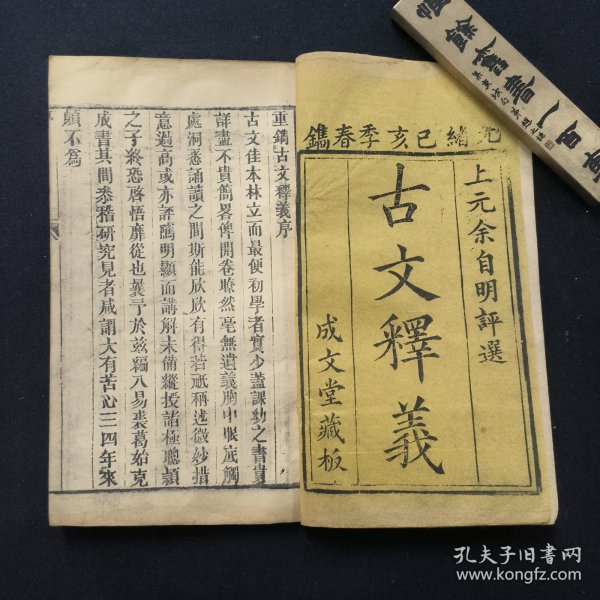 光緒己亥季春鐫
上元余自明評選
古文釋義
成文堂藏板
重鐫古文釋義序
古文佳本林立而最便初學者實少蓋課幼之書貴
詳盡不貴簡畧俾開卷瞭然毫無遺義胸中眼底觸
處洞悉誦讀之間斯能欣欣有得若祇稱述微妙措
意過高或亦評隲明顯而講解未備縱授諸極聰頴
之子終恐啓悟靡從也曩予於茲編八易裘葛始克
成書其間叅稽研究見者咸謂大有苦心三四年來
願不爲
餘舊書一百
孔夫子旧书网
www.kongfz.com